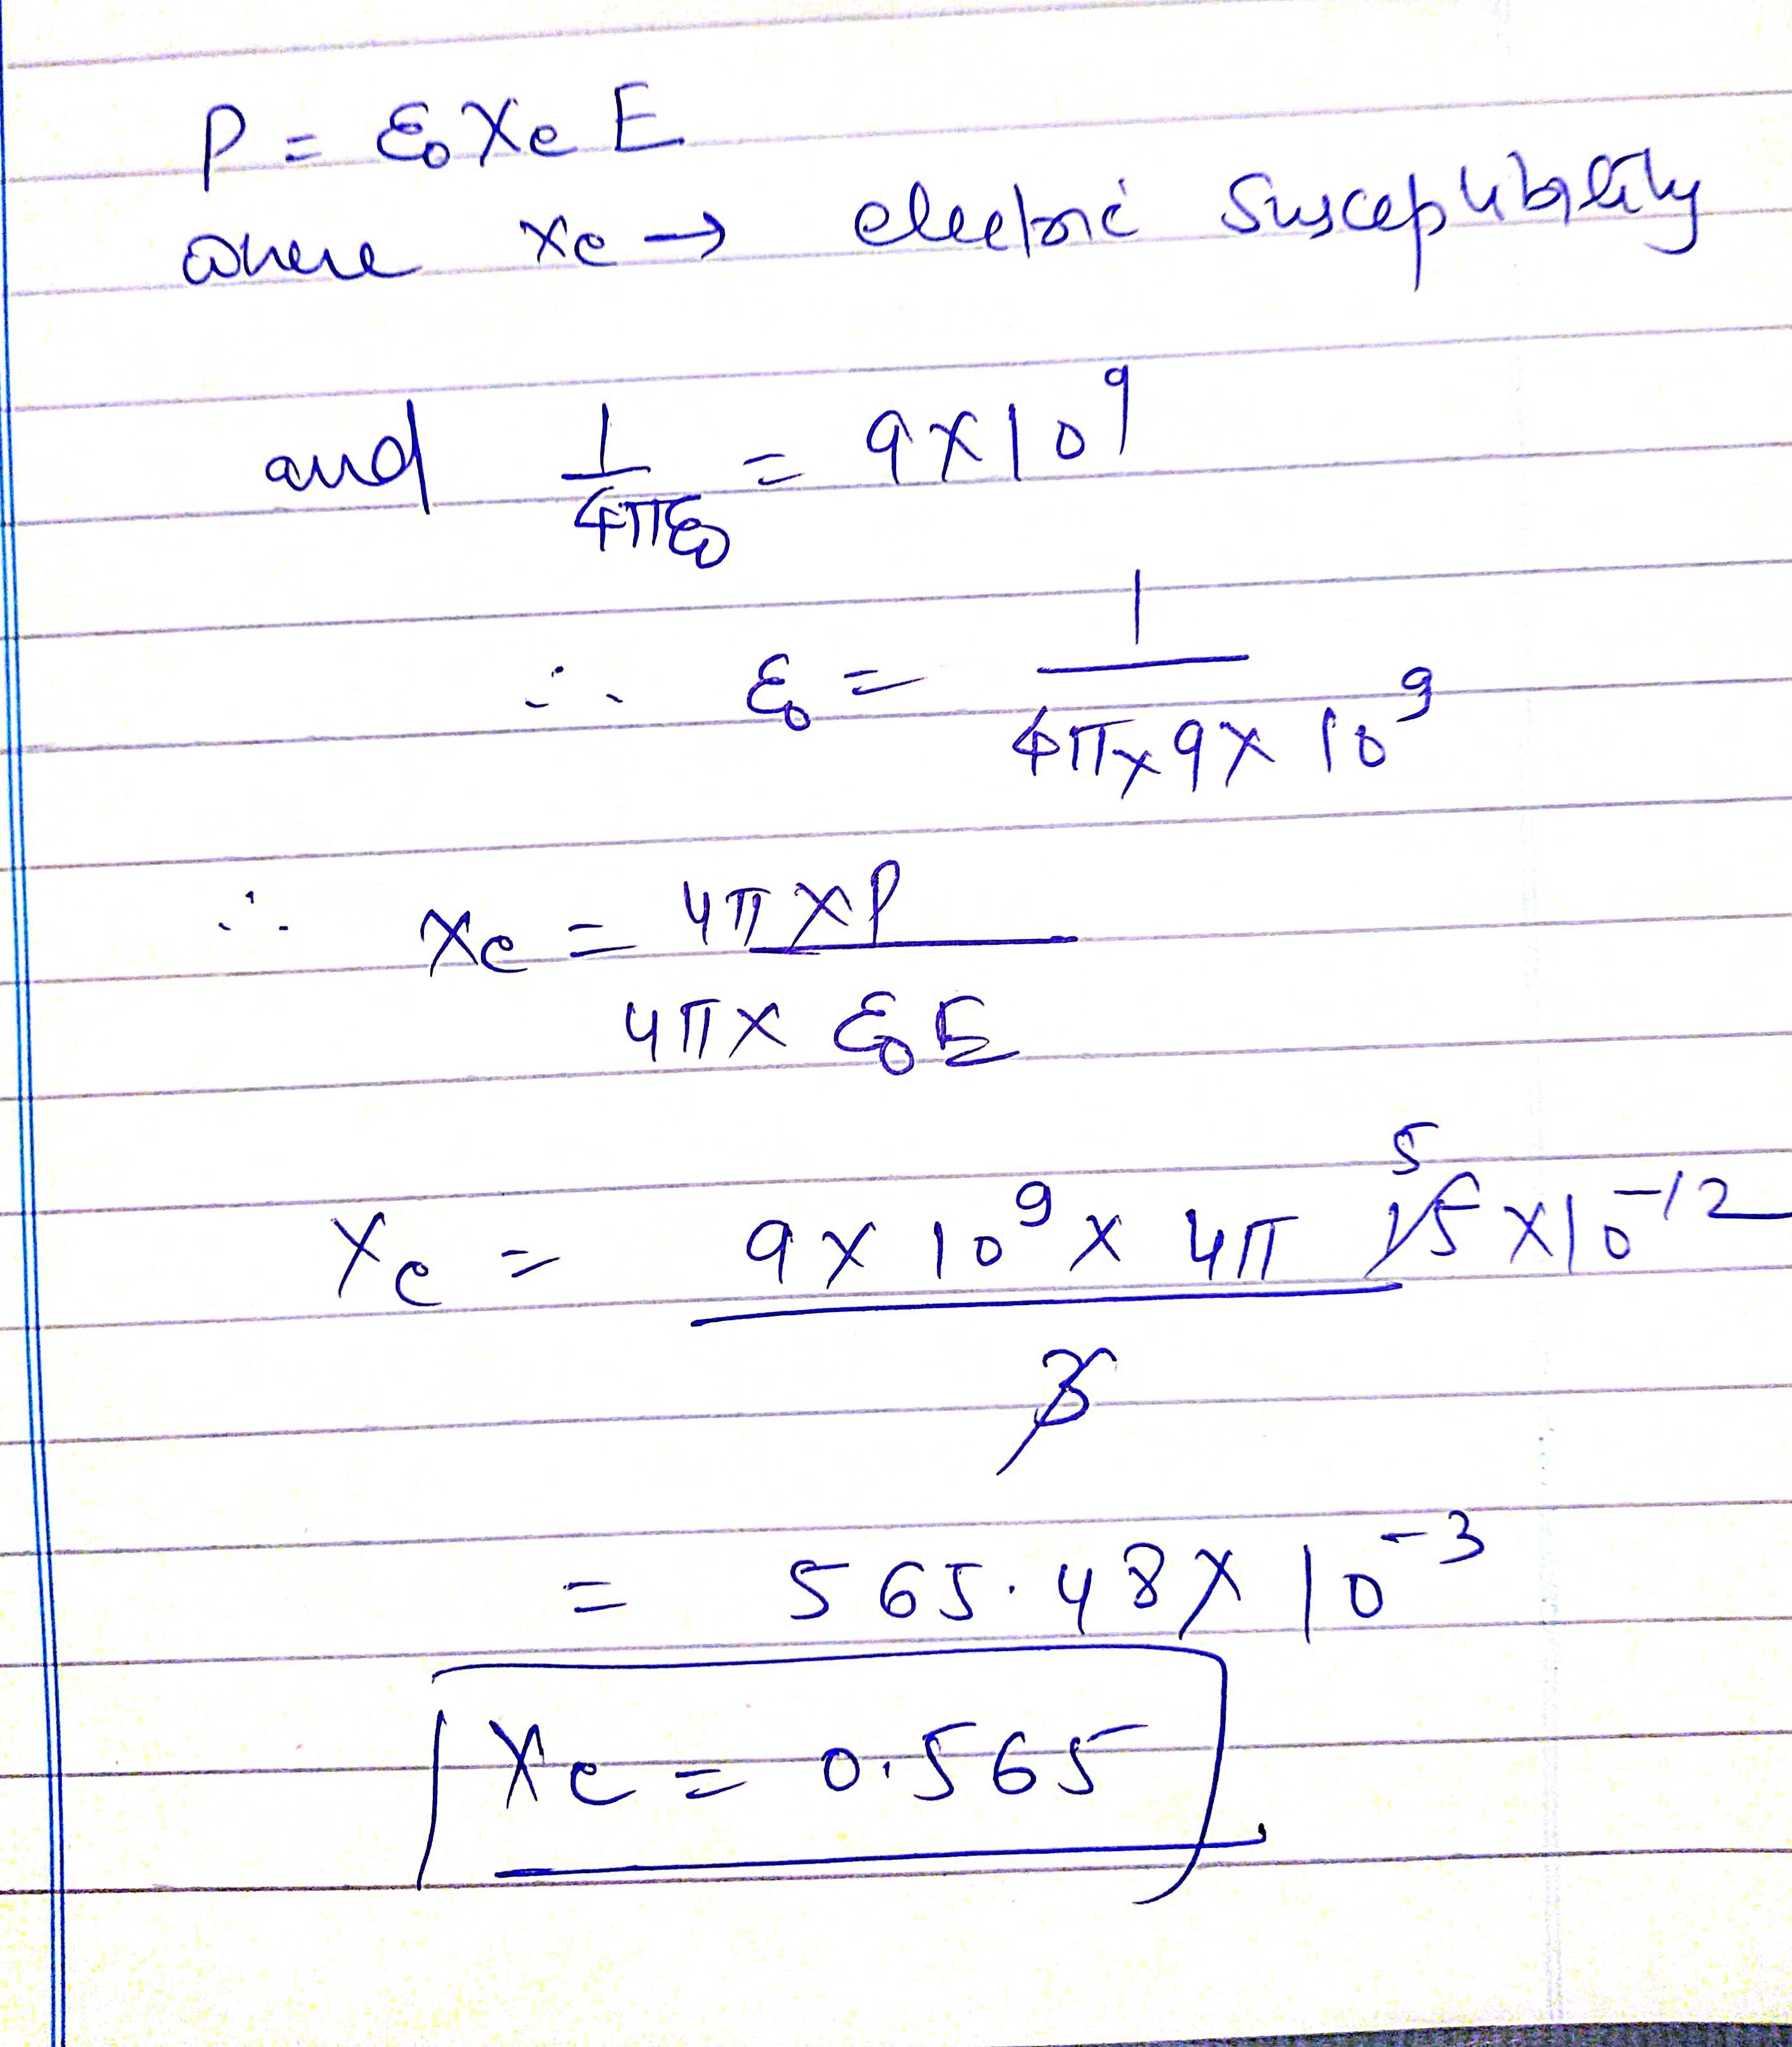 P = ε₀ Xe E
where xe → electric Susceptibility
and 1/4πε₀ = 9×10⁹
∴ ε₀ = 1/4π×9×10⁹
∴ Xe = 4π×P/4π× ε₀E
Xe = 9×10⁹×4π 15×10⁻¹²/3 5
= 565.48×10⁻³
Xe = 0.565